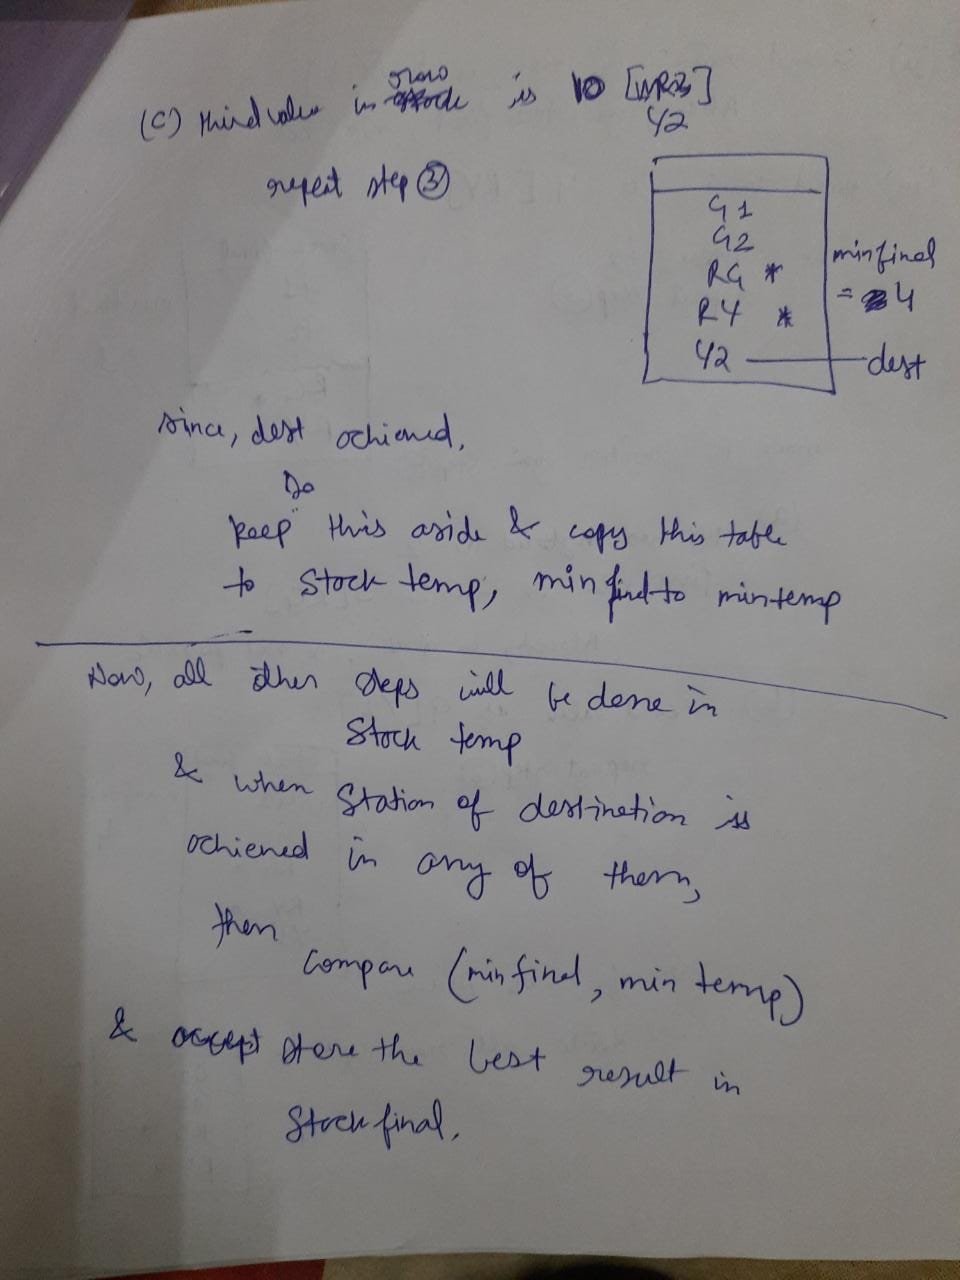 (c) third value in row is 10 [WRB]
Y2
repeat step ③
G1
G2
RG *
RY *
Y2 — dest
minfinal
= 4
since, dest achieved,
Do
keep this aside & copy this table
to Stack temp, min final to mintemp
Now, all other steps will be done in
Stack temp
& when Station of destination is
achieved in any of them,
then
Compare (min final, min temp)
& accept store the best result in
Stack final.